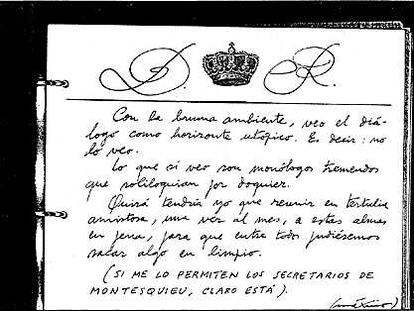 D. R.
Con la bruma ambiente, veo el diá-
logo como horizonte utópico. Es decir: no
lo veo.
Lo que sí veo son monólogos tremendos
que soliloquian por doquier.
Quizá tendría yo que reunir en tertulia
amistosa, una vez al mes, a estas almas
en pena, para que entre todos pudiésemos
sacar algo en limpio.
(SI ME LO PERMITEN LOS SECRETARIOS DE
MONTESQUIEU, CLARO ESTÁ).
(máximo)